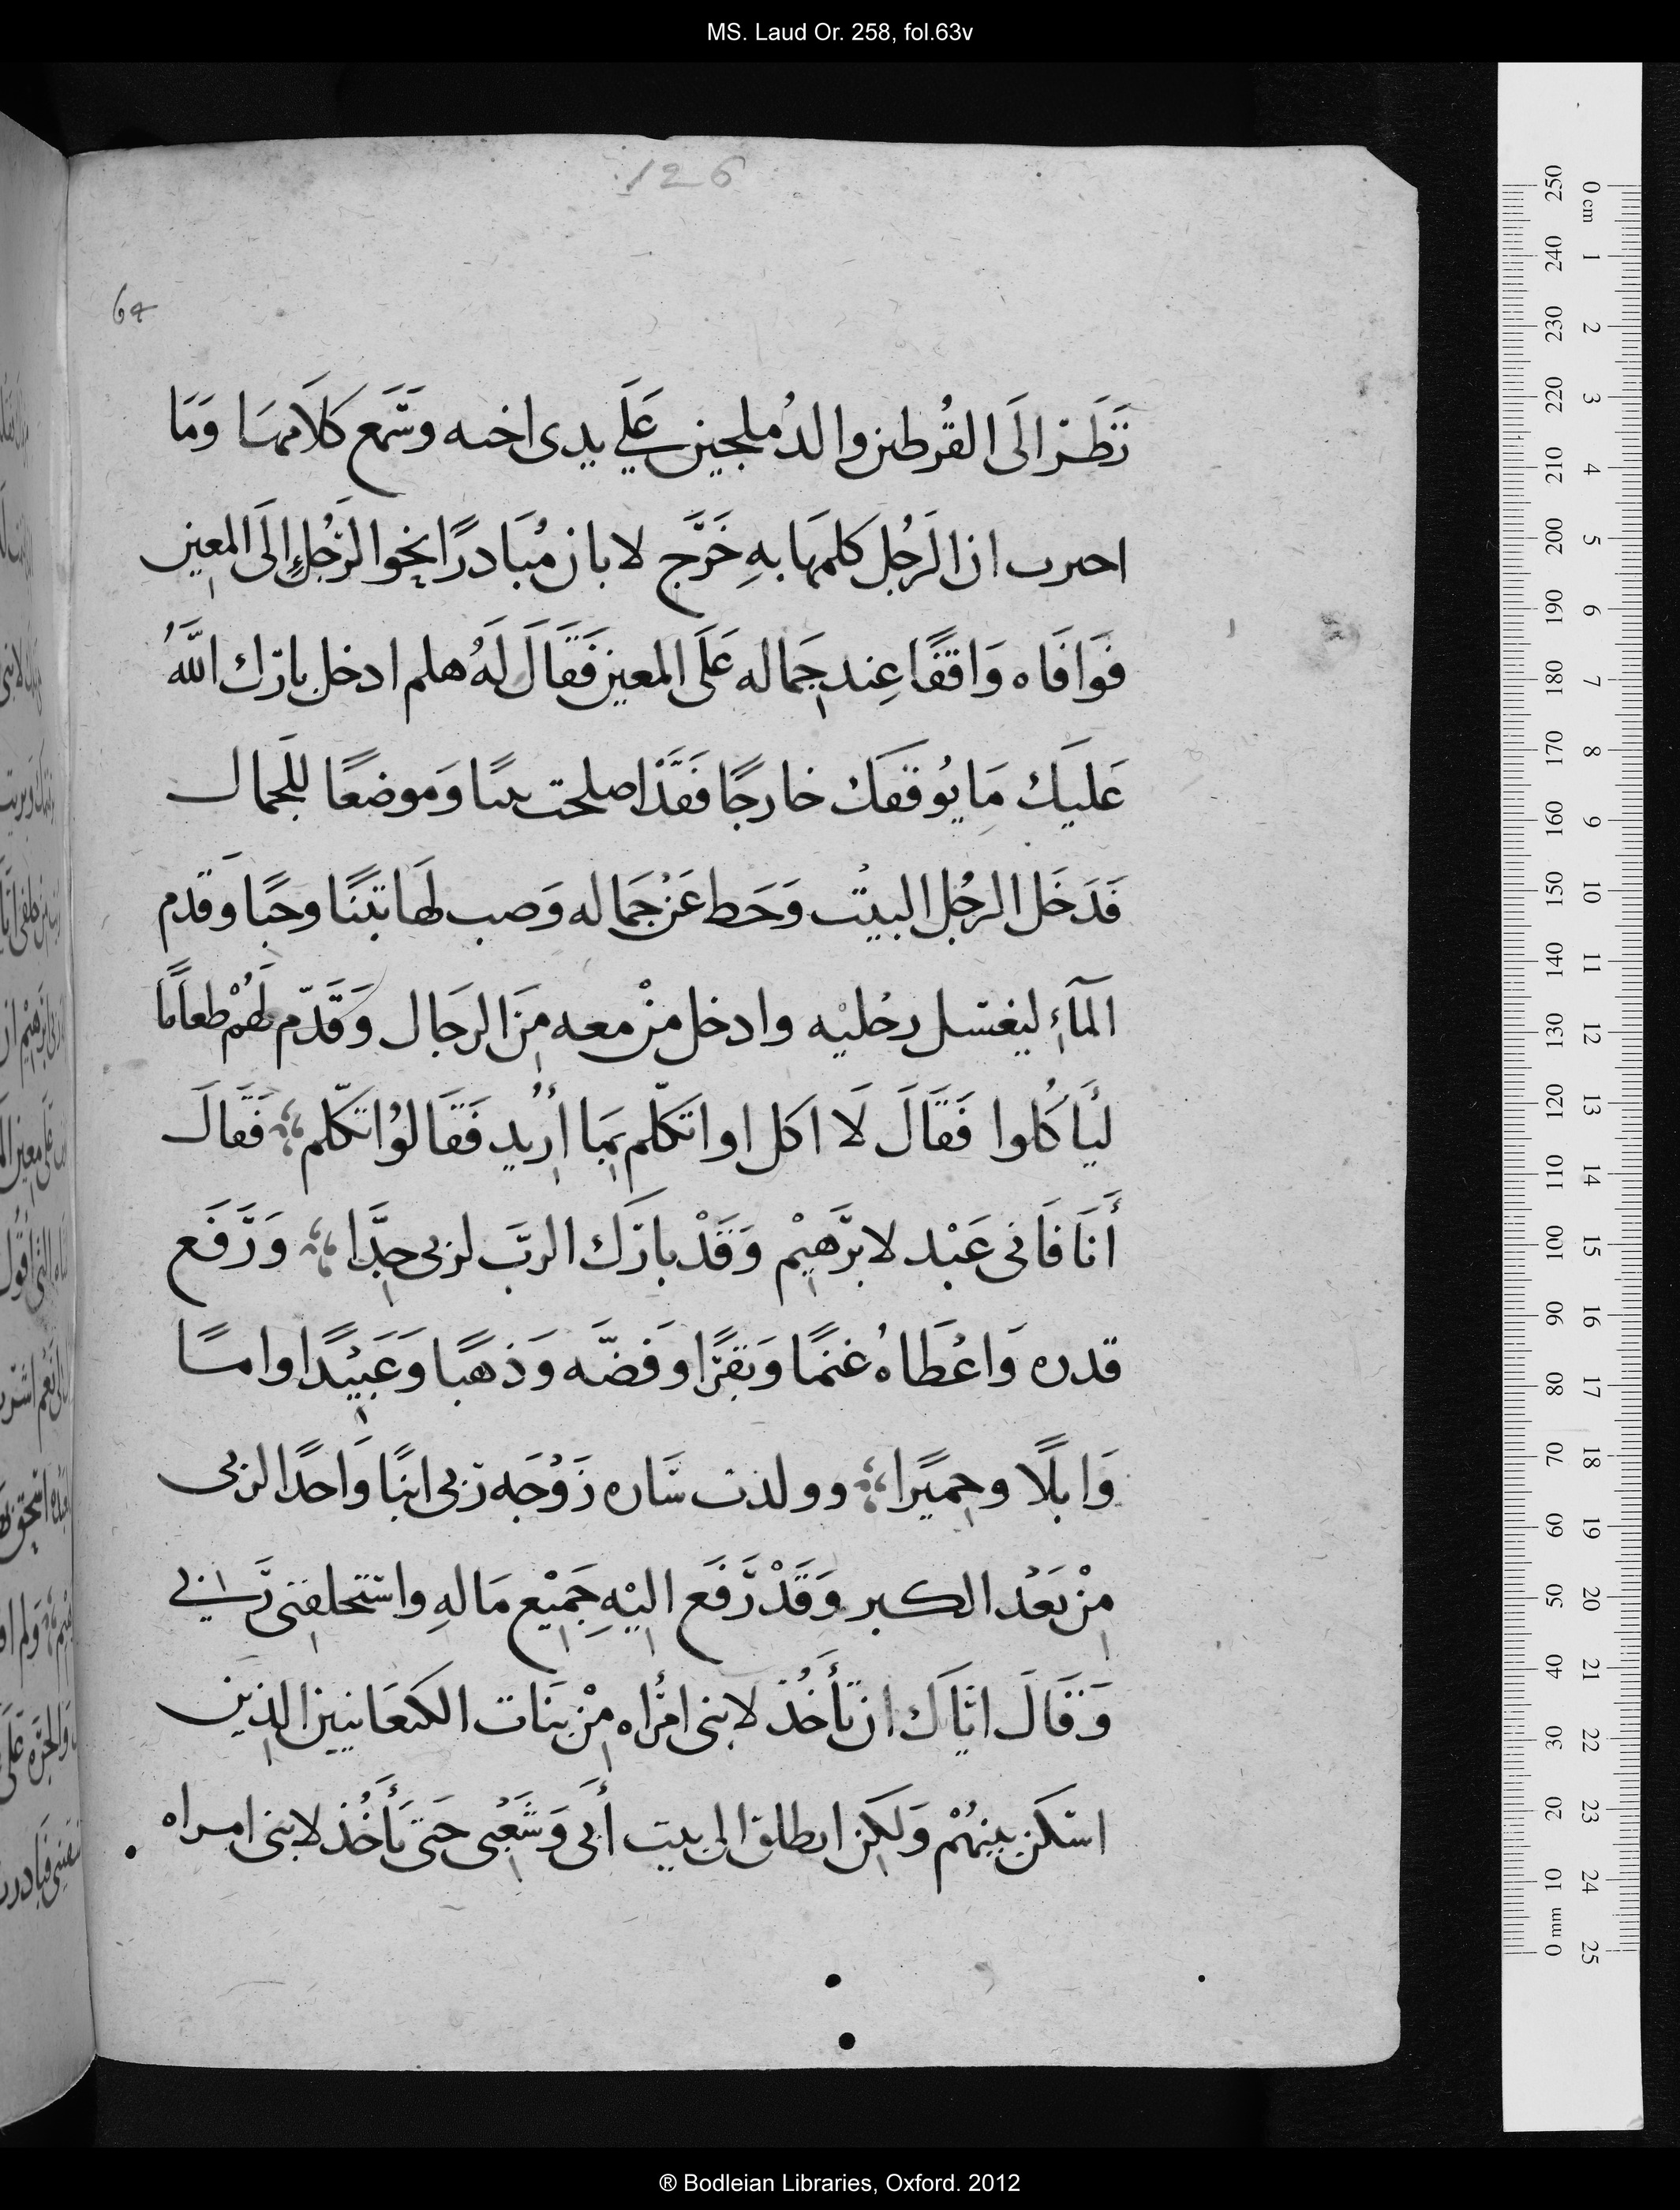 MS. Laud Or. 258, fol.63v
126
64
نَظَرَ الَى القُرطىن والدُملجين عَلَي يدى اخته وَسَمَع كلَامهَا وَمَا
احبرت ان الرَجُل كلمهَا بهِ خَرَج لابان مُبَادرًا نحو الرَجُلِ الَى المعين
فوَافَاه وَاقفًا عِند جمَاله عَلَى المعين فَقَالَ لَهُ هلم ادخل بارَك اللَّهُ
عَليَك مَا يُوقفَك خارجًا فَقَدْ اصلحت بىتًا وَموضعًا للجَمال
فَدَخَل الرجُل البيْت وَحَط عَنْ جمَاله وَصب لهَا تبنًا وحَبًا وَقدم
المآءِ ليغتسل رجليْه وادخل منْ معه مِنَ الرجَال وَقَدّم لَهُمْ طعامًا
ليَأكُلوا فَقَالَ لَا اكل او اتكلّم بمَا اُرِيد فَقَالوُا تكلّم فَقَالَ
أَنَا فَانى عَبْد لابرَهيْم وَقَدْ بارَك الربَ لربى جِدَّا وَرَفَع
قدره وَاعْطَاهُ غنمًا وَبقرًا وَفضَّه وَذهبًا وَعَبيْدًا وامىًا
وَابلًا وحميرًا وولدت سَاره زَوْجَه رَبى ابنًا وَاحدًا لربى
مِنْ بَعْد الكبر وَقَدْ رَفَع اليْهِ جَميْع مَا لهِ واستحلفنى رَبى
وَقَالَ ايَاك ان تَأخُذ لابنى امرَاه مِنْ بنَات الكنعَانيين الذِين
اسَكن بينهُمْ وَلكِن انطلق الى بيت أبى وَشَعْبى حَتى تَأخُذ لابنى امراه
® Bodleian Libraries, Oxford. 2012